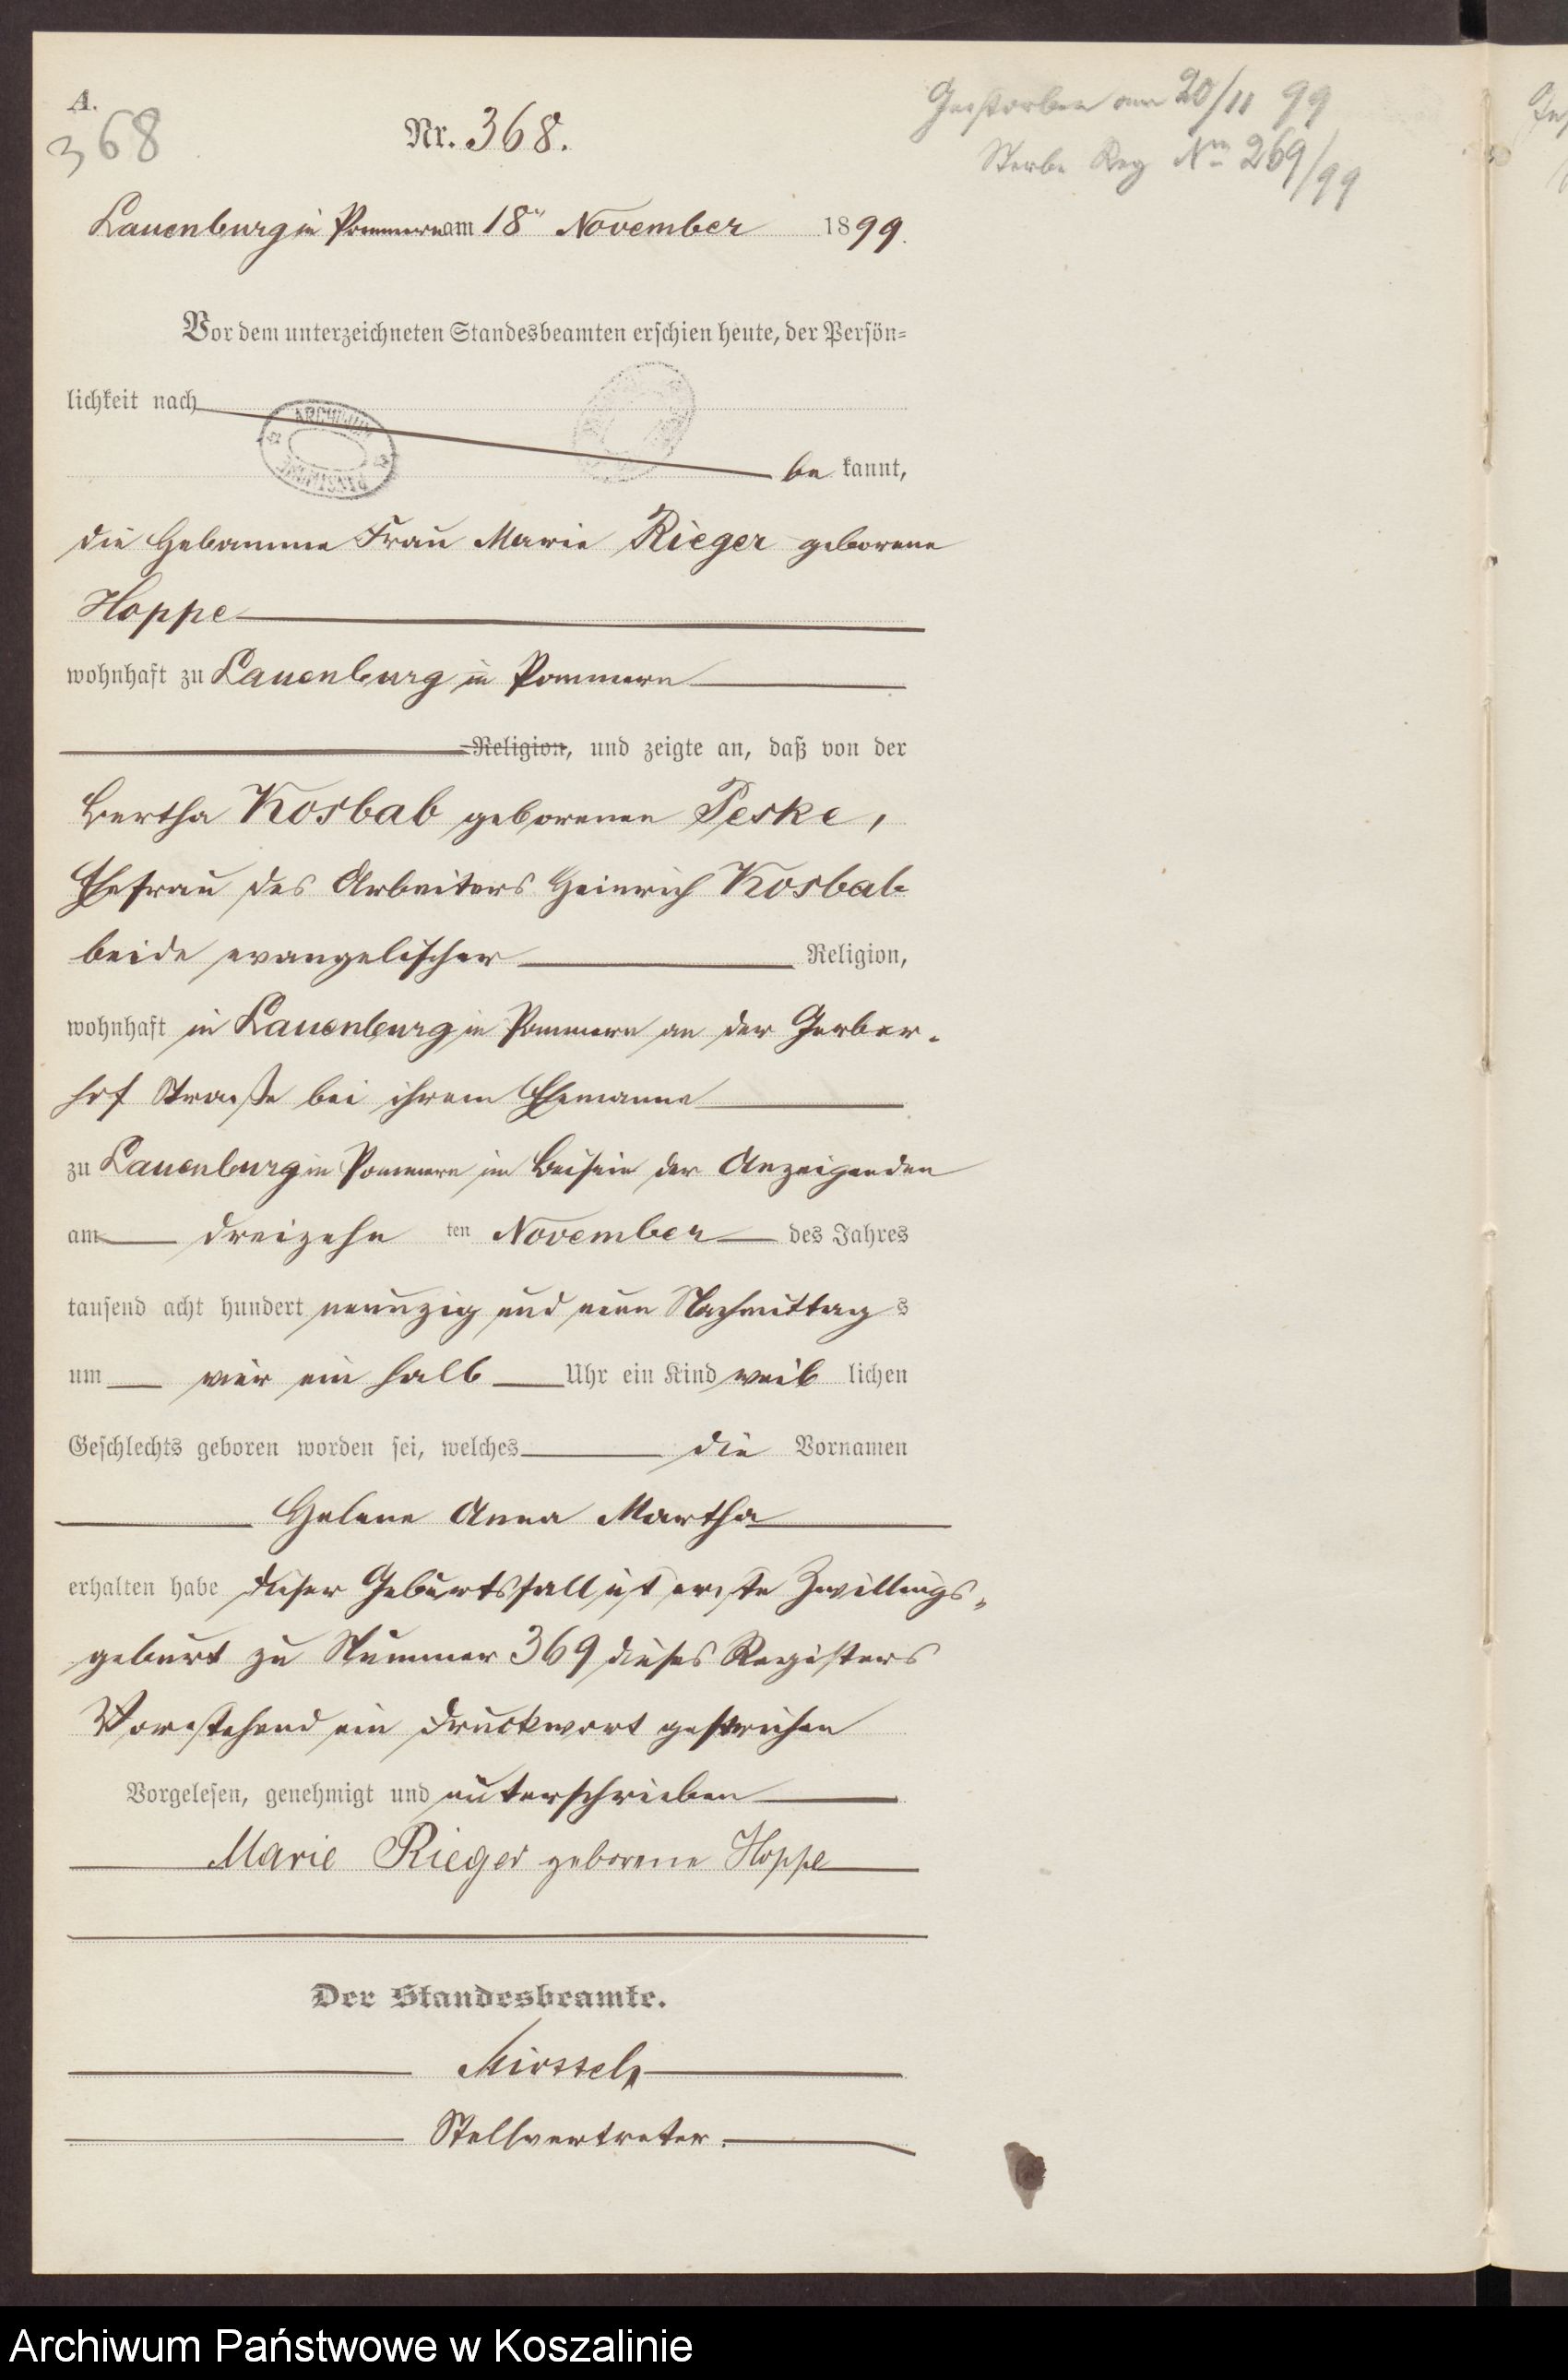 A.
368
Nr. 368.
Gestorben am 20/11 99
Sterbe Reg Nm 269/99
Lauenburg in Pommern am 18ten November 1899.
Vor dem unterzeichneten Standesbeamten erschien heute, der Persön-
lichkeit nach
ARCHIWUM
be kannt,
die Hebamme Frau Marie Rieger geborene
Hoppe
wohnhaft zu Lauenburg in Pommern
Religion, und zeigte an, daß von der
Bertha Kosbab geborenen Peske,
Ehefrau des Arbeiters Heinrich Kosbab
beide evangelischer Religion,
wohnhaft in Lauenburg in Pommern an der Gerber-
hof Straße bei ihrem Ehemanne
zu Lauenburg in Pommern im Beisein der Anzeigenden
am dreizehn ten November des Jahres
tausend acht hundert neunzig und neun Nachmittag s
um vier ein halb Uhr ein Kind weib lichen
Geschlechts geboren worden sei, welches die Vornamen
Helene Anna Martha
erhalten habe dieser Geburtsfall ist erste Zwillings-
geburt zu Nummer 369 dieses Registers
Vorstehend ein Druckwort gestrichen
Vorgelesen, genehmigt und unterschrieben
Marie Rieger geborene Hoppe
Der Standesbeamte.
Stellvertreter.
Archiwum Państwowe w Koszalinie